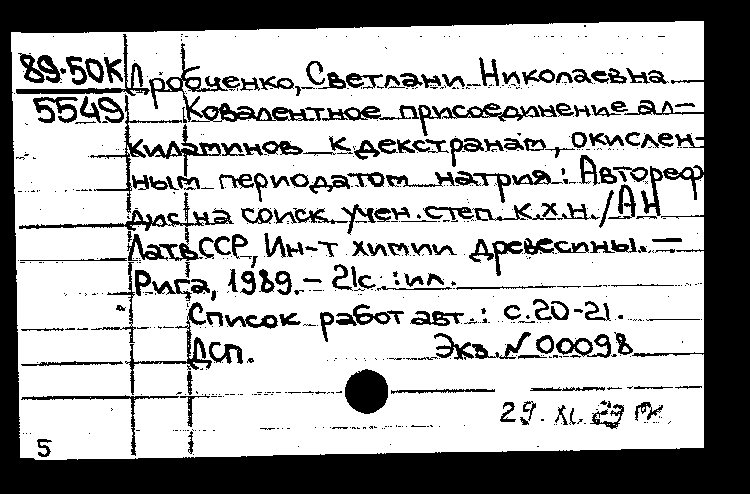 89-50К Дробченко, Светлани Николаевна.
5549 Ковалентное присоединение ал-
киламинов к декстранам, окислен-
ным периодатом натрия: Автореф
дис на соиск. учен. степ. к.х.н./АН
ЛатвССР, Ин-т химии древесины. —
Рига, 1989. - 21с. : ил.
Список работ авт.: с.20-21.
ДСП. Экз. № 00098
29. XI. 89
5